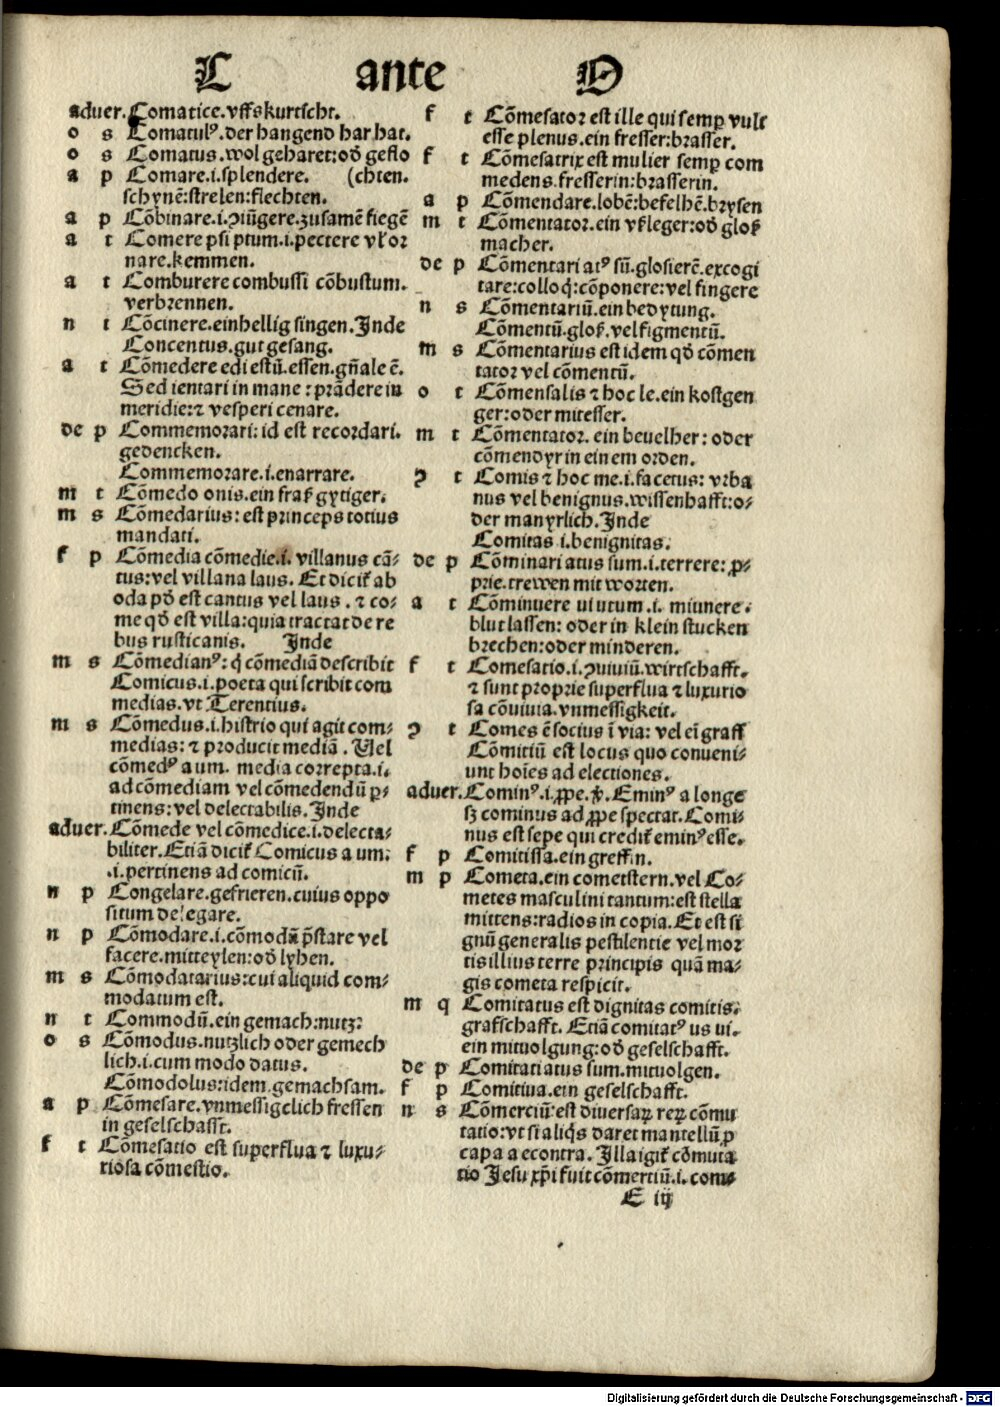 C ante O
aduer. Comatice.vffskurtscht.
o s Comatulꝰ.der hangend har hat.
o s Comatus.wol geharet:od̉ geflo
a p Comare.i.splendere. (chten.
schynē:strelen:flechten.
a p Cōbinare.i.ꝯiūgere.zusamē fiegē
a t Comere psi ptum.i.pectere vl̓ or
nare.kemmen.
a t Comburere combussi cōbustum.
verbrennen.
n t Cōcinere.einhellig singen.Inde
Concentus.gut gesang.
a t Cōmedere edi estū.essen.gn̄ale ē.
Sed ientari in mane:prādere in
meridie:⁊ vesperi cenare.
de p Commemorari:id est recordari.
gedencken.
Commemorare.i.enarrare.
m t Cōmedo onis.ein fraß gytiger.
m s Cōmedarius:est princeps totius
mandati.
f p Cōmedia cōmedie.i. villanus cā-
tus:vel villana laus. Et dicit̉ ab
oda qd̉ est cantus vel laus.⁊ co-
me qd̉ est villa:quia tractat de re
bus rusticanis. Inde
m s Cōmedianꝰ:q̇ cōmediā describit
Comicus.i.poeta qui scribit com
medias.vt Terentius.
m s Cōmedus.i.histrio qui agit com-
medias:⁊ producit mediā. Vel
cōmedꝰ a um. media correpta.i.
ad cōmediam vel cōmedendū ꝑ-
tinens:vel delectabilis.Inde
aduer. Cōmede vel cōmedice.i.delecta-
biliter.Etiā dicit̉ Comicus a um:
.i.pertinens ad comicū.
n p Congelare.gefrieren.cuius oppo
situm delegare.
n p Cōmodare.i.cōmodū p̄stare vel
facere.mitteylen:od̉ lyhen.
m s Cōmodatarius:cui aliquid com-
modatum est.
n t Commodū.ein gemach:nutz:
o s Cōmodus.nutzlich oder gemech
lich.i.cum modo datus.
Cōmodolus:idem gemachsam.
a p Cōmesare.vnmessigclich fressen
in geselschafft.
f t Cōmesatio est superflua ⁊ luxu-
riosa cōmestio.
f t Cōmesator est ille qui semꝑ vult
esse plenus.ein fresser:brasser.
f t Cōmesatrix est mulier semꝑ com
medens.fresserin:brasserin.
a p Cōmendare.lobē:befelhē.brysen
m t Cōmentator.ein vßleger:od̉ gloß
macher.
de p Cōmentari atꝰ sū.glosierē.excogi
tare:colloq̇:cōponere:vel fingere
n s Cōmentariū.ein bedytung.
Cōmentū.gloß.vel figmentū.
m s Cōmentarius est idem qd̉ cōmen
tator vel cōmentū.
o t Cōmensalis ⁊ hoc le.ein kostgen
ger:oder mitesser.
m t Cōmentator. ein beuelher:oder
cōmendyr in einem orden.
ꝯ t Comis ⁊ hoc me.i.facetus:vrba
nus vel benignus.wissenhafft:o-
der manyrlich.Inde
Comitas i.benignitas.
de p Cōminari atus sum.i.terrere:ꝓ-
prie.trewen mit worten.
a t Cōminuere ui utum.i. minuere.
blut lassen:oder in klein stucken
brechen:oder minderen.
f t Comesatio.i.ꝯuiuiū.wirtschafft.
⁊ sunt proprie superflua ⁊ luxurio
sa cōuiuia.vnmessigkeit.
ꝯ t Comes ē socius ī via: vel eī graff
Cōmitiū est locus quo conueni-
unt hoīes ad electiones.
aduer. Cominꝰ.i.ꝓpe. Eminꝰ a longe
sꝫ cominus ad ꝓpe spectat.Comi-
nus est sepe qui credit̉ eminꝰ esse.
f p Comitissa.ein greffin.
m p Cometa.ein cometstern.vel Co-
metes masculini tantum:est stella
mittens:radios in copia.Et est si
gnū generalis pestilentie vel mor
tis illius terre principis quā ma-
gis cometa respicit.
m q Comitatus est dignitas comitis:
grafschafft. Etiā comitatꝰ us ui.
ein mituolgung:od̉ geselschafft.
de p Comitari atus sum.mituolgen.
f p Comitiua.ein geselschafft.
n s Cōmerciū est diuersaꝝ reꝝ cōmu
tatio:vt si aliq̇s daret mantellū ꝓ
capa a econtra. Illa igit̉ cōmuta
tio Jesu xp̄i fuit cōmertiū.i. com-
E iij
Digitalisierung gefördert durch die Deutsche Forschungsgemeinschaft - DFG